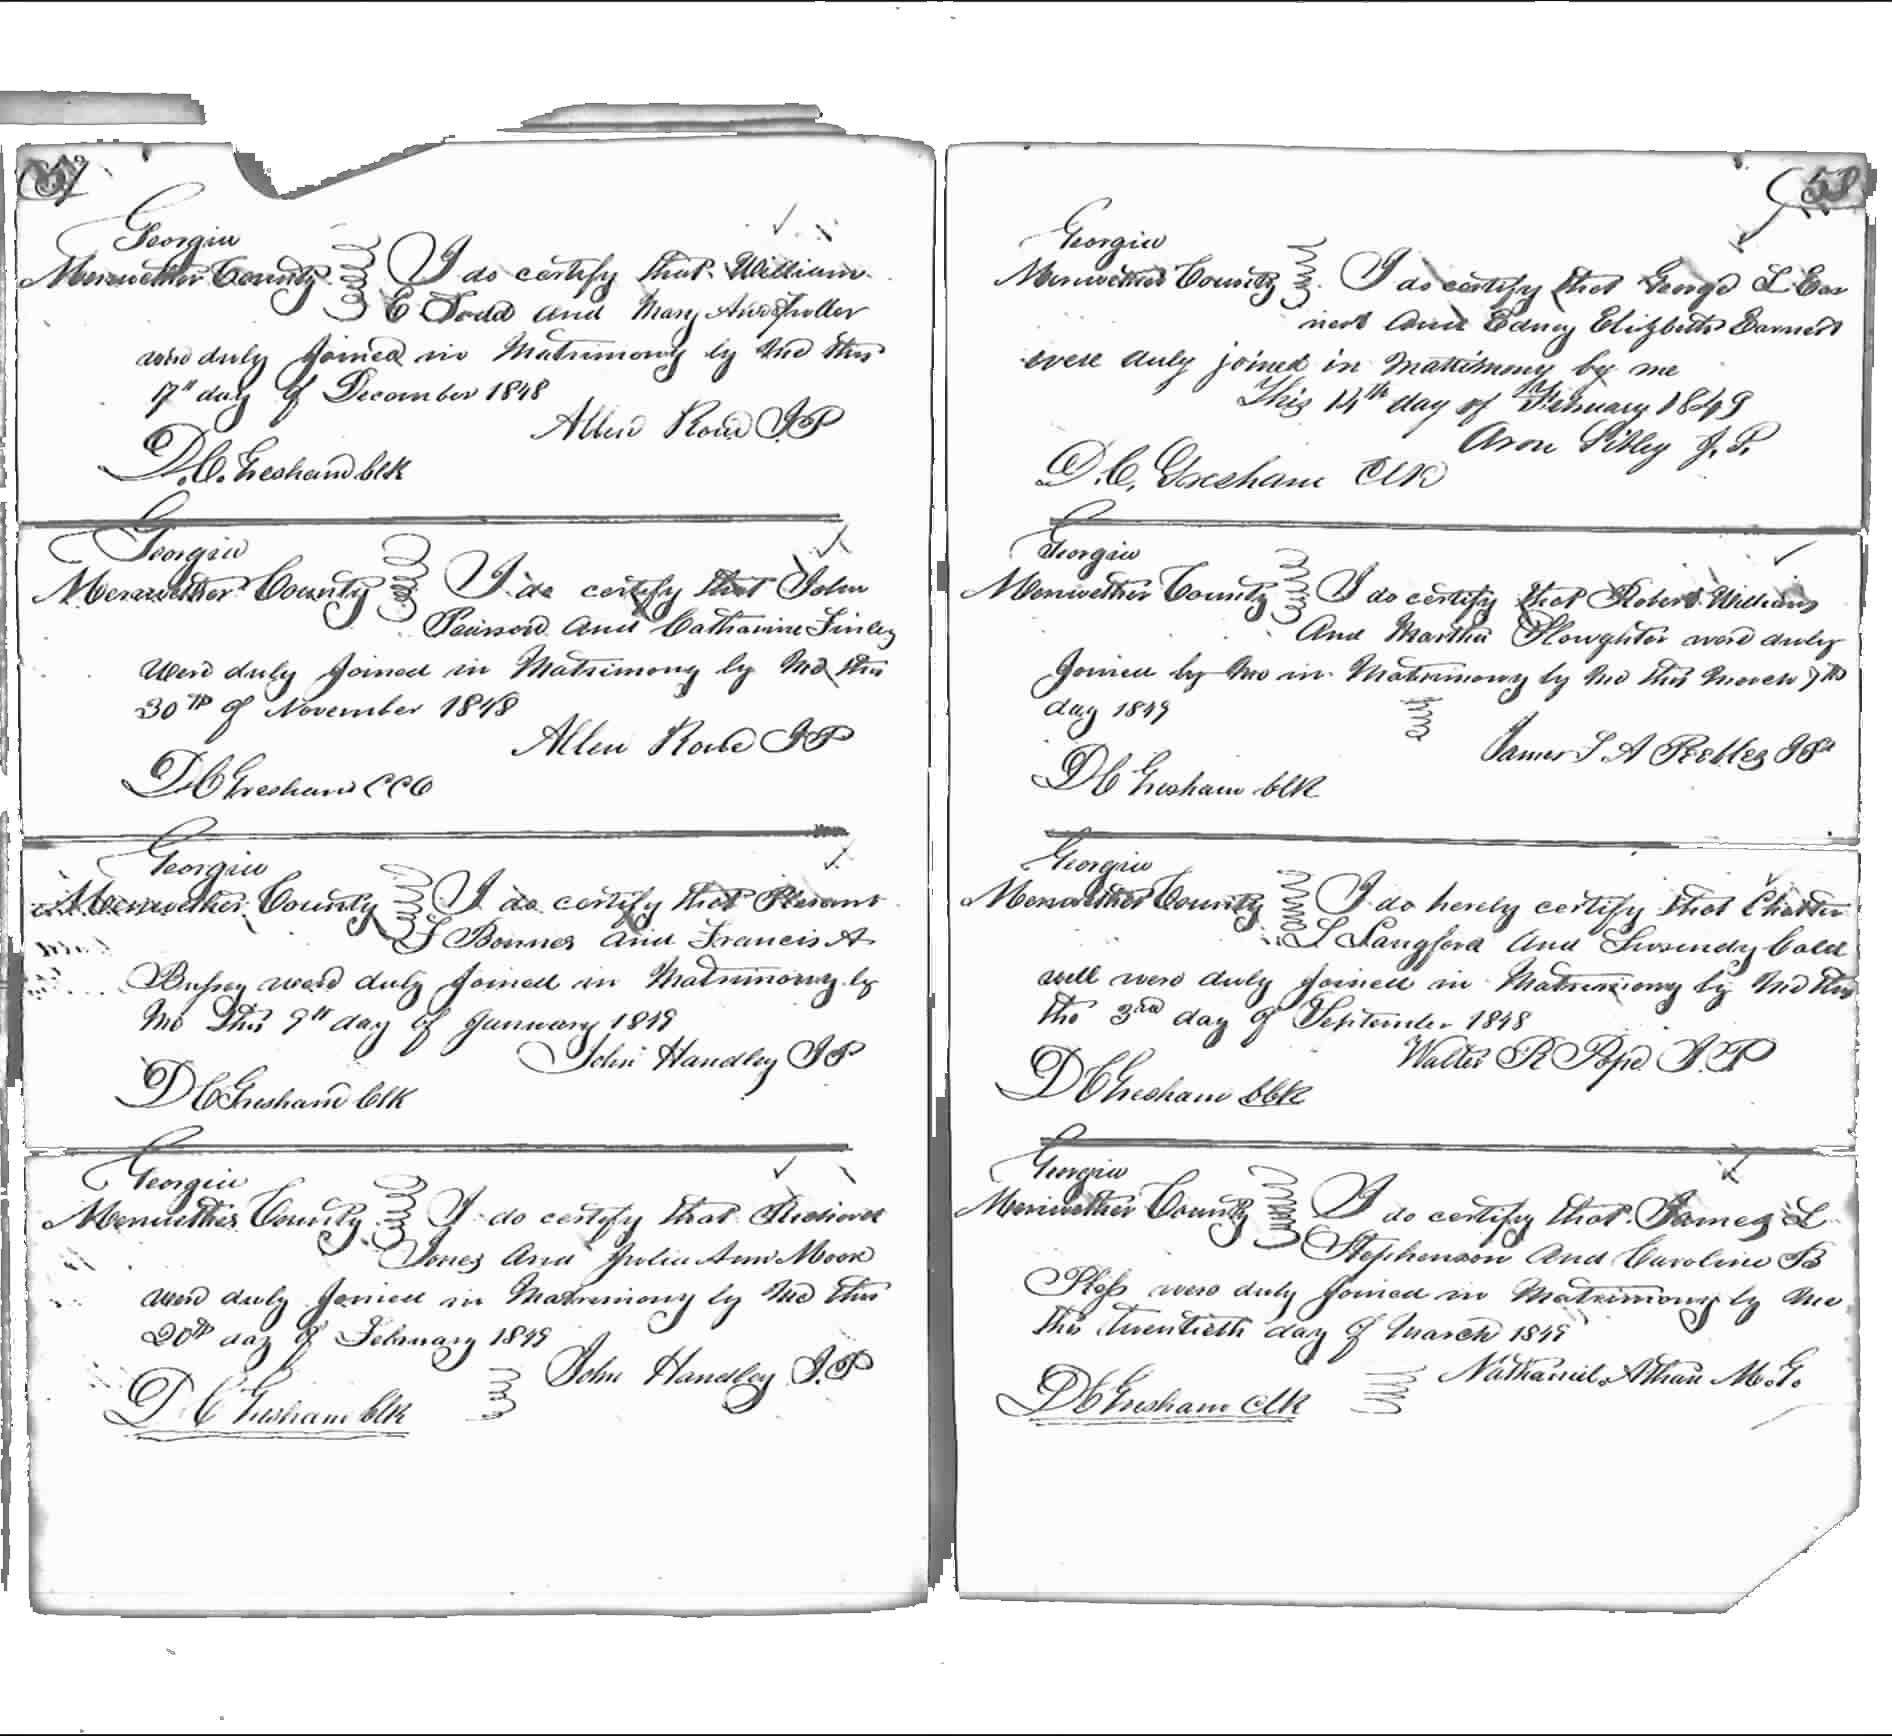 57
Georgia
Meriwether County I do certify that William
C Todd and Mary Ann Fuller
were duly Joined in Matrimony by me this
17th day of December 1848
Allen Rowe J P
D. C. Gresham Clk
Georgia
Meriwether County I do certify that John
Pearson and Catharine Finley
were duly Joined in Matrimony by Me this
30th of November 1848
Allen Rowe J P
D C Gresham C C O
Georgia
Meriwether County I do certify that Plesant
T Bonner and Francis A
Bussey were duly Joined in Matrimony by
Me This 9th day of January 1849
John Handley J P
D C Gresham Clk
Georgia
Meriwether County I do certify that
Jones and Julia Ann Moon
were duly Joined in Matrimony by Me this
20th day of February 1849
John Handley J. P
D C Gresham Clk
58
Georgia
Meriwether County I do certify that George L Ear
nest and Edney Elizbeth Earnest
were duly joined in Matrimony by me
This 14th day of February 1849
Aron Sibley J. P.
D. C. Gresham Clk
Georgia
Meriwether County I do certify that Robert Williams
And Martha Sloughter were duly
Joined by Me in Matrimony by Me this March 7th
day 1849
James S A Peebles J P
D C Gresham Clk
Georgia
Meriwether County I do herely certify that Chester
L Langford And Cald
well were duly Joined in Matrimony by Me this
the 3rd day of September 1848
Walter R Pope J. P
D C Gresham Clk
Georgia
Meriwether County I do certify that James L
Stephenson And Caroline B
Pless were duly Joined in Matrimony by Me
this twentieth day of March 1849
Nathaniel Athan M. G.
D C Gresham Clk